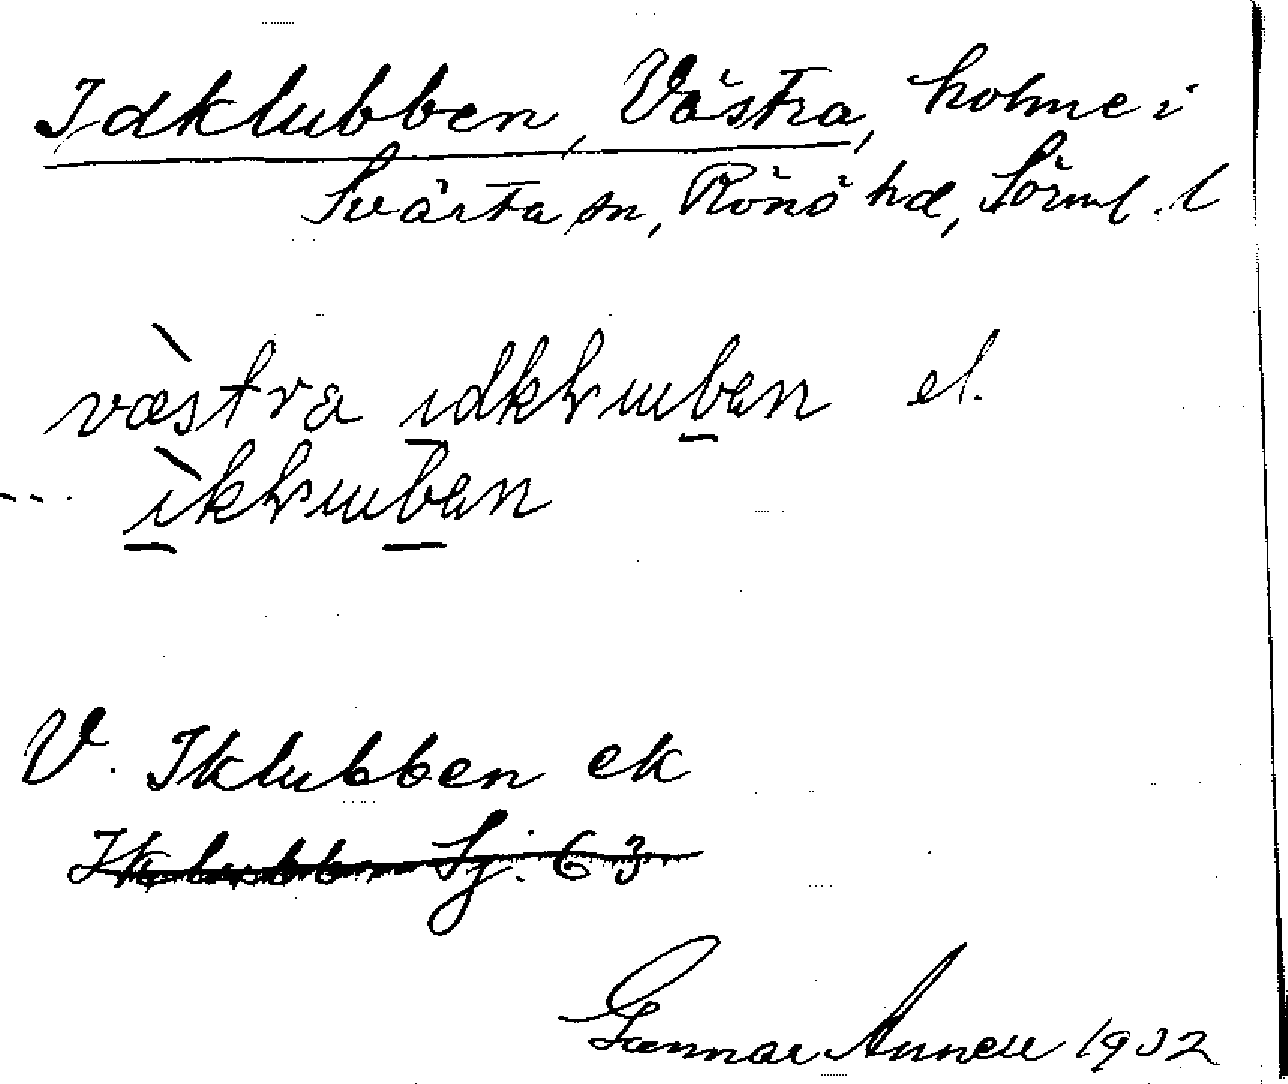 Idklubben, Västra, holme i
Svärta sn, Rönö hd, Sörml. l
västra idkluben el.
... ikluben
V. Iklubben ek
Iklubben Sj. 63
Gunnar Annell 1932